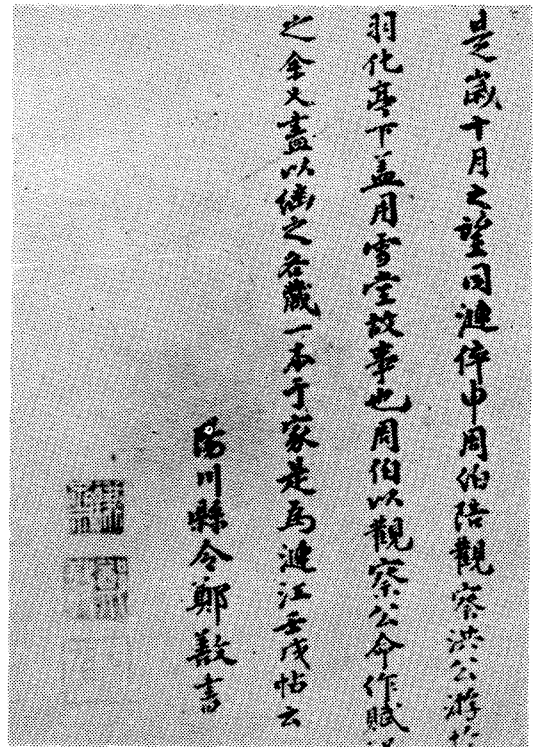 是歲十月之望同漣倅申周伯陪觀察洪公游於
羽化亭下盖用雪堂故事也周伯以觀察公命作賦
之余又畵以繼之各藏一本于家是爲漣江壬戌帖云
陽川縣令鄭敾書